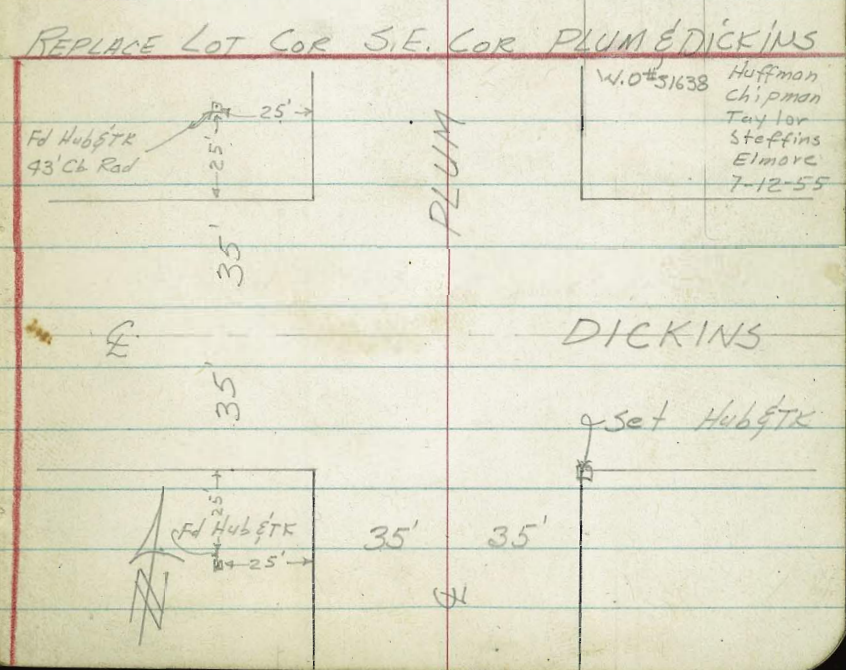 REPLACE LOT COR S.E. COR PLUM & DICKINS
W.O#51638
Huffman
Chipman
Taylor
Steffins
Elmore
7-12-55
25'
Fd Hub & TK
43' Cb Rad
25'
PLUM
35'
℄
DICKINS
35'
Set Hub & TK
25'
Fd Hub & TK
25'
35' 35'
℄
N